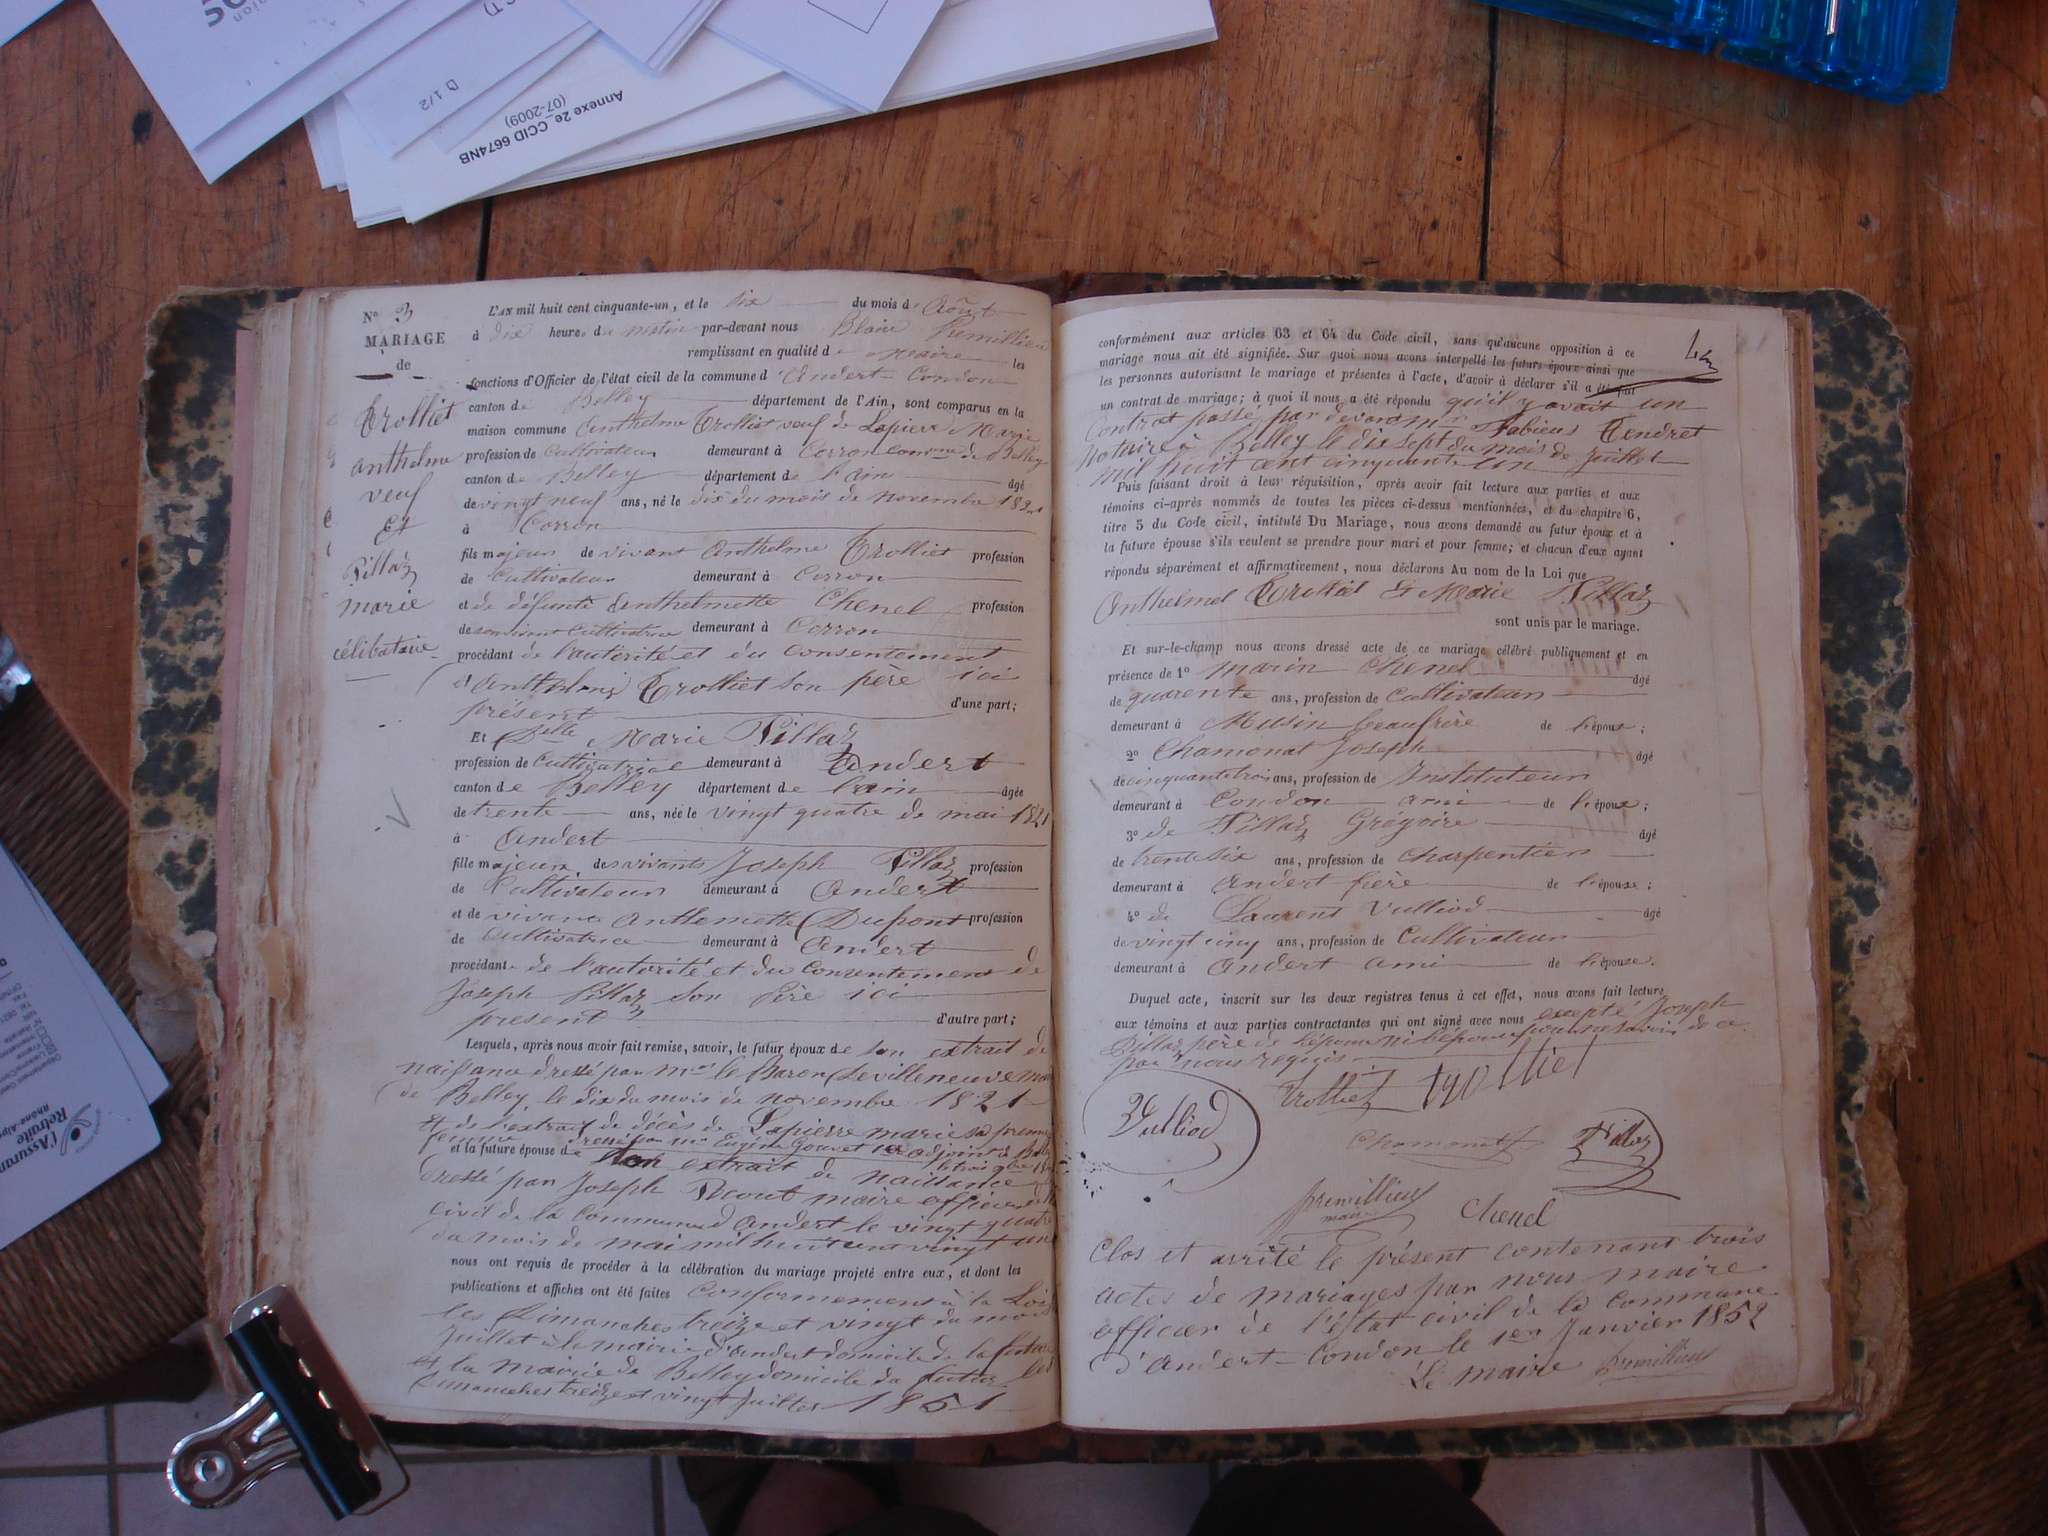 Annexe 2e_CCID 6674NB
(07-2009)
D 1/2
N° 3
MARIAGE
de
Trolliet
anthelme
veuf
Et
Pillaz
marie
célibataire
L'AN mil huit cent cinquante-un, et le six du mois d'Août
à dix heures du matin par-devant nous Blain Premillieu
remplissant en qualité de maire les
fonctions d'Officier de l'état civil de la commune d'Andert-Condon
canton de Belley département de l'Ain, sont comparus en la
maison commune Anthelme Trolliet veuf de Lapierre Marie
profession de Cultivateur demeurant à Corron comune de Belley
canton de Belley département de l'ain âgé
de vingt neuf ans, né le dix du mois de novembre 1821
à Corron
fils majeur de vivant Anthelme Trolliet profession
de Cultivateur demeurant à Corron
et de défunte Anthelmette Chenel profession
de son vivant Cultivatrice demeurant à Corron
procédant de l'autorité et du consentement
d'Anthelme Trolliet son père ici
présent d'une part;
Et Delle Marie Pillaz
profession de Cultivatrice demeurant à Andert
canton de Belley département de l'ain âgée
de trente ans, née le vingt quatre de mai 1821
à Andert
fille majeure des vivants Joseph Pillaz profession
de Cultivateur demeurant à Andert
et de vivante Anthemette Dupont profession
de Cultivatrice demeurant à Andert
procédant de l'autorité et du consentement de
Joseph Pillaz son Père ici
present d'autre part;
Lesquels, après nous avoir fait remise, savoir, le futur époux de son extrait de
naissance dressé par Mr le Baron Devilleneuve Maire
de Belley le dix du mois de novembre 1821
Et de l'extrait de décès de Lapierre marie sa premiere
femme dressé par Mr Eugène Gouvet 1er adjoint à Belley
et la future épouse de son extrait de naissance
dressé par Joseph maire officier de
civil de la Commune d'andert le vingt quatre
du mois de mai mil huit cent vingt un
nous ont requis de procéder à la célébration du mariage projeté entre eux, et dont les
publications et affiches ont été faites Conformement à la Loi
les Dimanches treize et vingt du mois
Juillet à la mairie d'andert domicile de la future
et la mairie de Belley domicile du futur les
Dimanches treize et vingt Juillet 1851
conformément aux articles 63 et 64 du Code civil, sans qu'aucune opposition à ce
mariage nous ait été signifiée. Sur quoi nous avons interpellé les futurs époux ainsi que
les personnes autorisant le mariage et présentes à l'acte, d'avoir à déclarer s'il a été fait
un contrat de mariage; à quoi il nous a été répondu qu'il y avait un
Contrat passé par devant Mr Fabiens Tendret
Notaire à Belley le dix sept du mois de Juillet
mil huit cent cinquante un
Puis faisant droit à leur réquisition, après avoir fait lecture aux parties et aux
témoins ci-après nommés de toutes les pièces ci-dessus mentionnées, et du chapitre 6,
titre 5 du Code civil, intitulé Du Mariage, nous avons demandé au futur époux et à
la future épouse s'ils veulent se prendre pour mari et pour femme; et chacun d'eux ayant
répondu séparément et affirmativement, nous déclarons Au nom de la Loi que
Anthelmel Trolliet Et Marie Pillaz
sont unis par le mariage.
Et sur-le-champ nous avons dressé acte de ce mariage célébré publiquement et en
présence de 1° marin Chenel âgé
de quarente ans, profession de Cultivateur
demeurant à Musin beaufrère de l'épouse;
2° Chamonat Joseph âgé
de cinquante trois ans, profession de Instituteur
demeurant à Condon ami de l'épouse;
3° de Pillaz Gregoire âgé
de trente six ans, profession de Charpentier
demeurant à Andert frère de l'épouse;
4° de Laurent Vulliod âgé
de vingt cinq ans, profession de Cultivateur
demeurant à Andert ami de l'épouse.
Duquel acte, inscrit sur les deux registres tenus à cet effet, nous avons fait lecture
aux témoins et aux parties contractantes qui ont signé avec nous excepté Joseph
Pillaz père de l'épouse ni l'épouse pour ne savoir de ce
par nous requis
Trolliet trolliet
Vulliod
Chamonat Pillaz
premillieu
maire
Chenel
Clos et arrêté le présent contenant trois
actes de mariages par nous maire
officier de l'état civil de la Commune
d'Andert-Condon le 1er Janvier 1852
Le maire premillieu
l'Assurance
Retraite
Rhône-Alpes